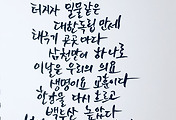 터지자 밀물같은
대한독립 만세
태극기 곳곳마다
삼천만이 하나로
이날은 우리의 의요
생명이요 교훈이다
한강물 다시 흐르고
백두산 높았다